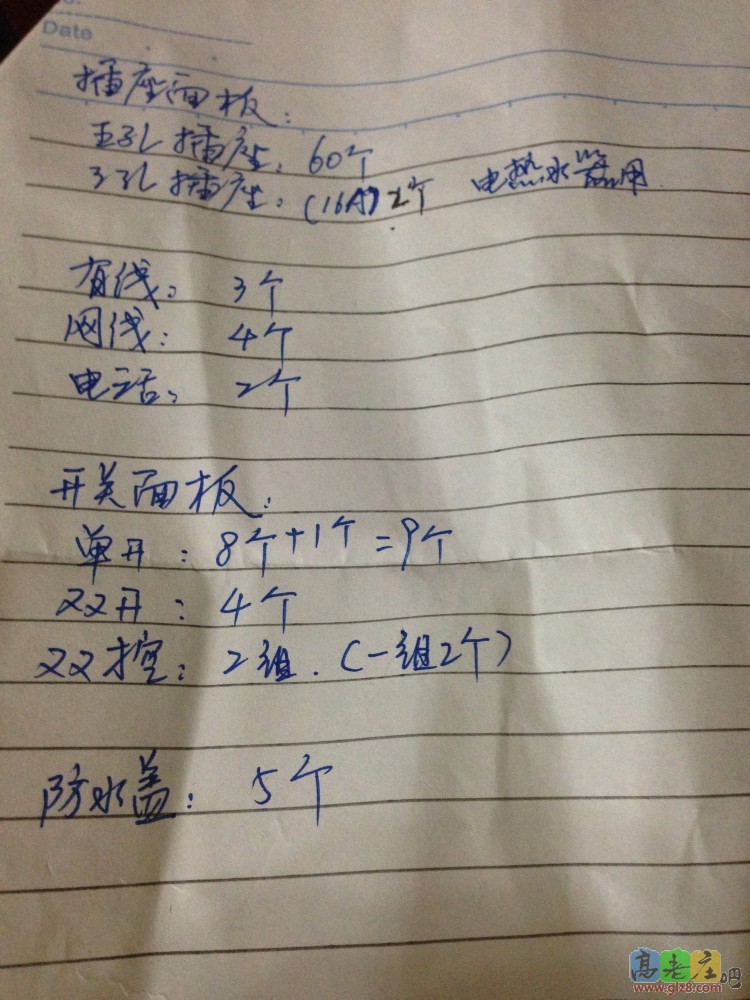 Date
插座面板:
五孔插座: 60个
3孔插座: (16A) 2个 电热水器用
有线: 3个
网线: 4个
电话: 2个
开关面板:
单开: 8个+1个=9个
双开: 4个
双控: 2组. (一组2个)
防水盖: 5个
高老庄吧
www.glz8.com